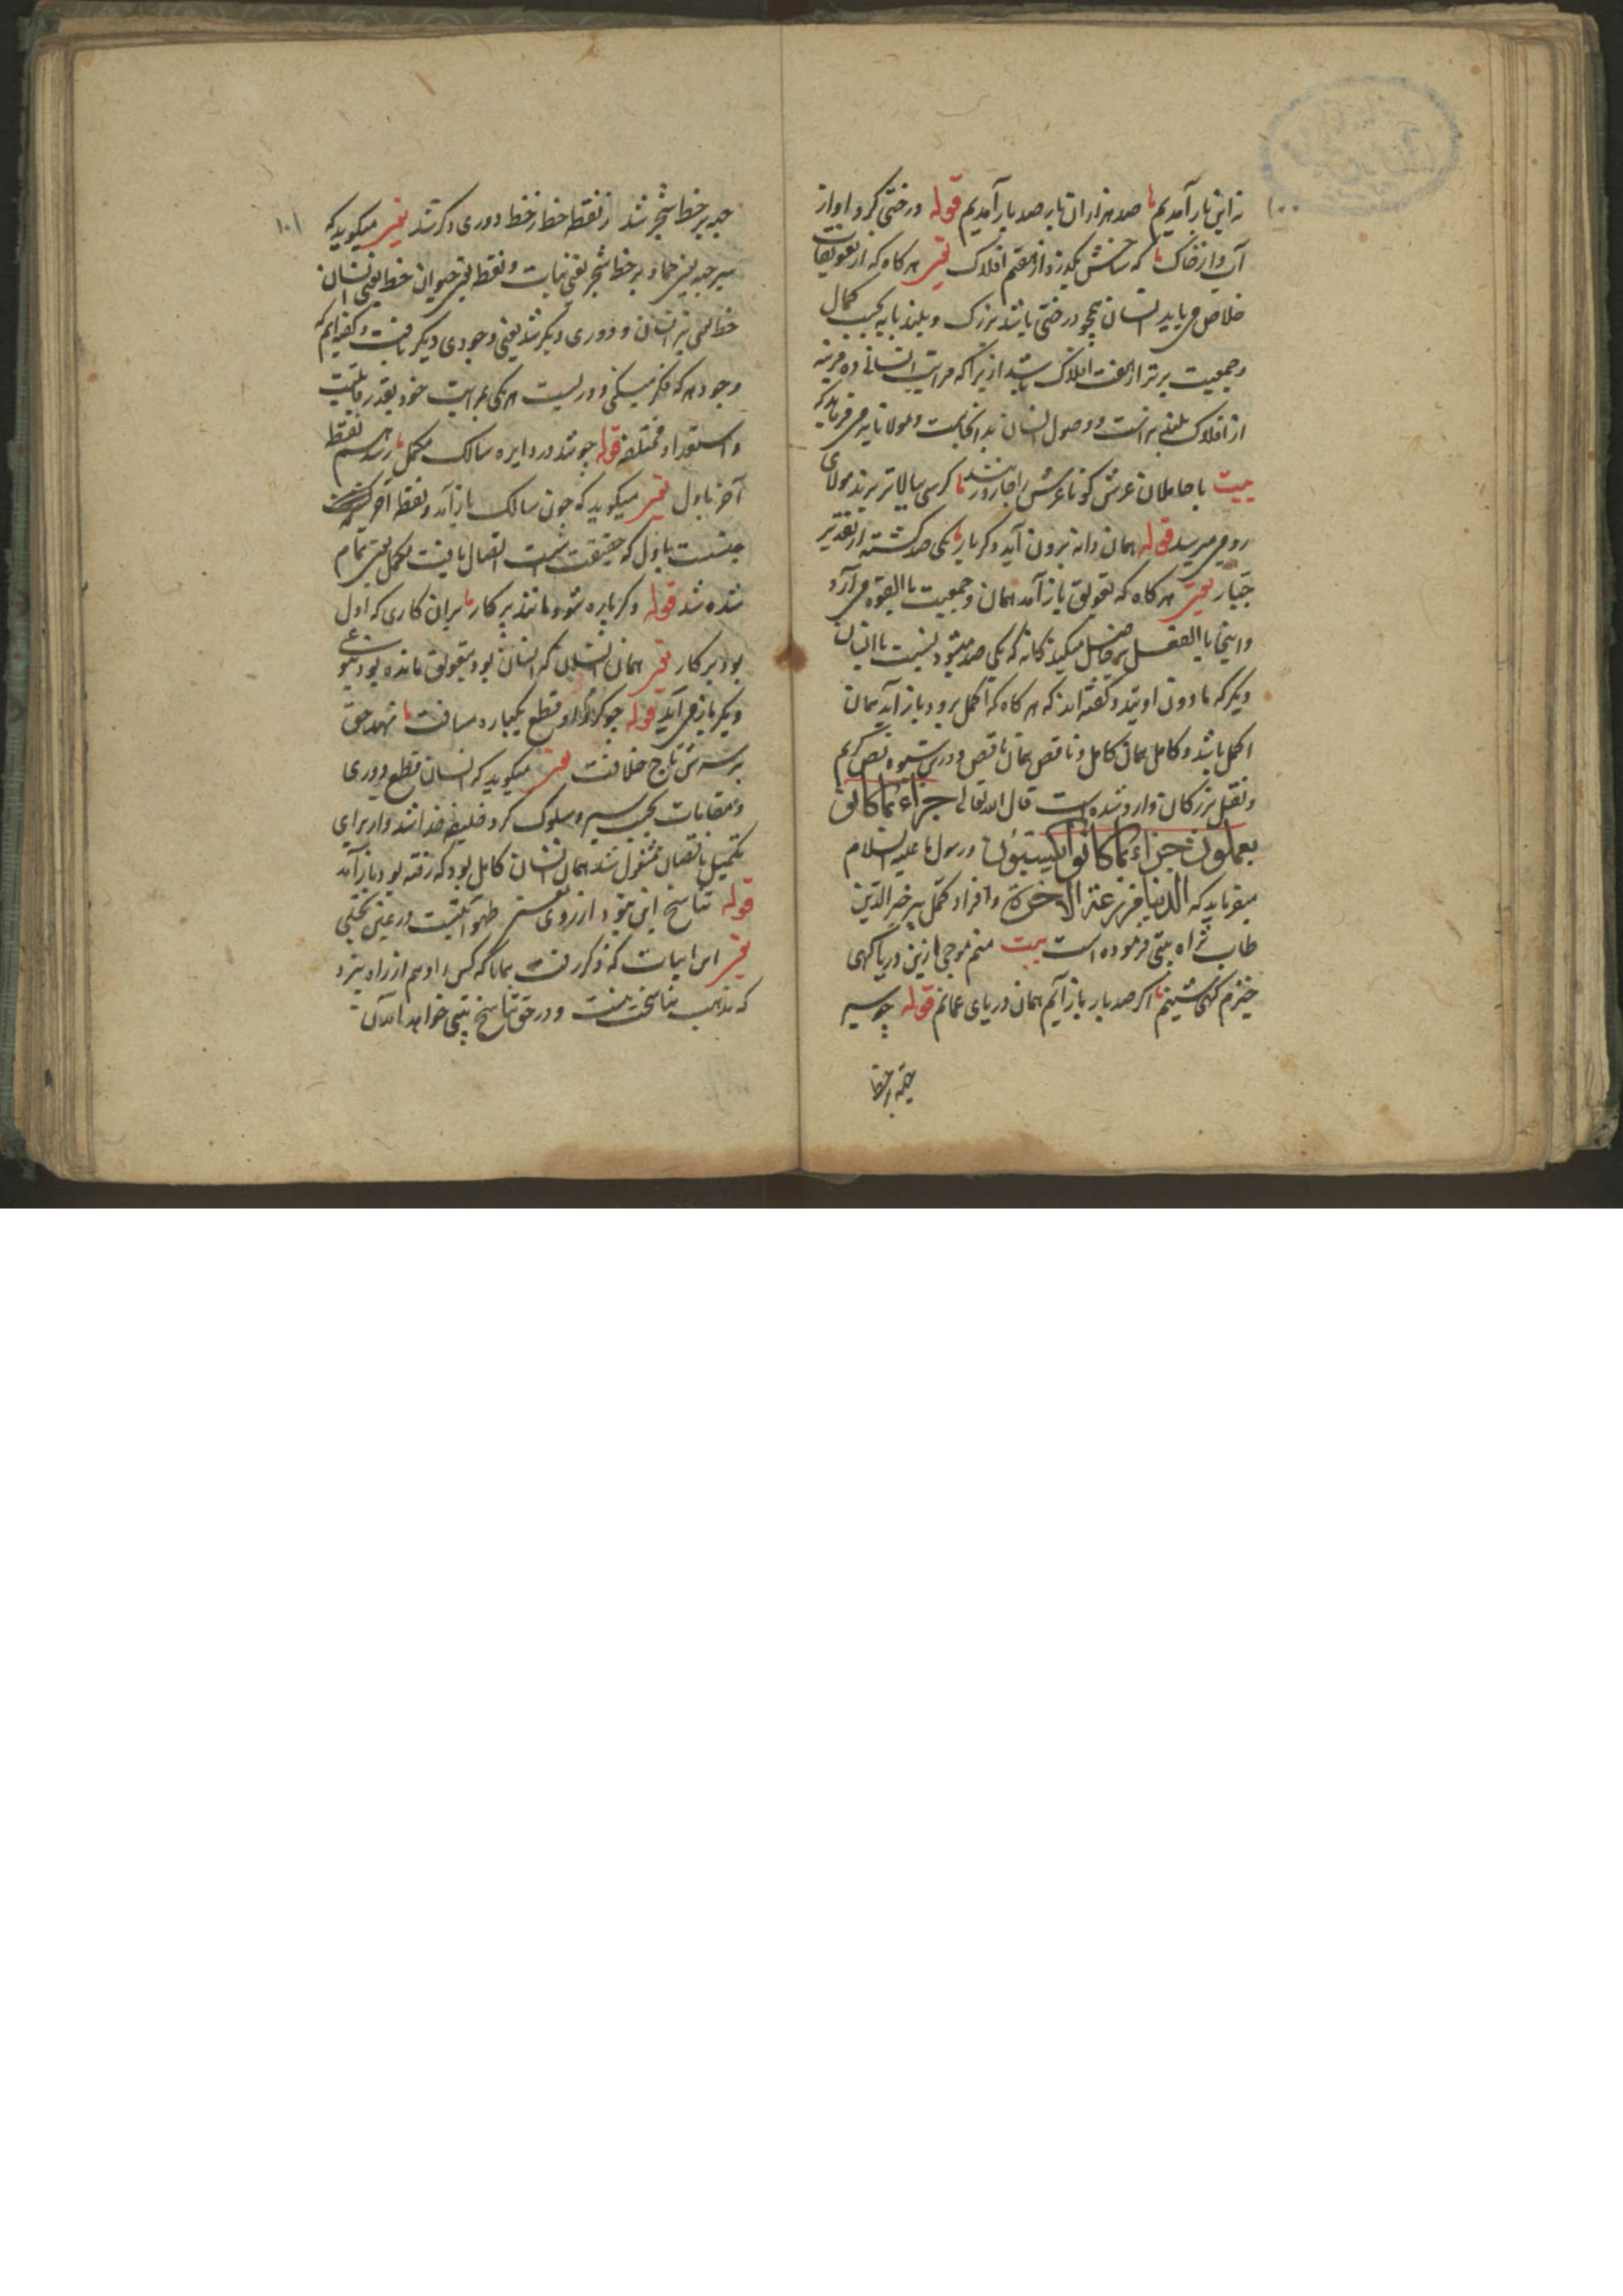 نه این بار آمدیم ما صد هزاران بار صد بار آمدیم قوله درختی کردد او از
آب و از خاک که شاخش بگذرد از هفتم افلاک یعنی هر کاه که از تعویقات
خلاص می یابد انسان همچو درختی باشد بزرک و بلند پایه بحسب کمال
و جمعیت برتر از هفت افلاک باشد از یرا که مراتب انسانی ده مرتبه
از افلاک بلند تر است و وصول انسان بدانجاست و مولانا می فرماید که
بیت با حاملان عرش کو تا عرش را کرسی بالاتر برند مولای
رومی میرسد قوله همان دانه برون آید دکر بار یکی صد کشته از تقدیر
جبار یعنی هر کاه که تعویق باز آمد همان جمعیت بالقوه می آرد
و اینجا بالفعل حاصل میکند که یکی صد میشود نسبت با انسان
دیکر که مادون اویند و کفته اند که هر کاه که اکمل برود باز آید همان
اکمل باشد و کامل همان کامل و ناقص همان ناقص و درین شیوه نص کریم
و نقل بزرکان وارد شده است قال الله تعالی جزاء بما کانوا
یعملون جزاء بما کانوا یکسبون و رسول ما علیه السلام
میفرماید که الدنیا مزرعة الآخرة و افراد کمل پیر خیر الدین
طاب ثراه بیتی فرموده است بیت منم موجی ازین دریا کهی
خیزم کهی شینم اکر صد بار باز آیم همان دریای عمانم قوله چو سیر
حبه بر خط
۱۰۰
حبه بر خط شجر شد ز نقطه خط ز خط دوری دکر شد یعنی میکوید که
سیر حبه یعنی جماد بر خط شجر یعنی نبات و نقطه یعنی حیوان خط یعنی انسان
خط یعنی انسان و دوری دیکر شد یعنی وجودی دیکر یافت و کفته ایم که
وجود هر که فکر میکنی دوریست هر یکی بمراتب خود بقدر قابلیت
و استعداد مختلفه قوله چو شد در دایره سالک مکمل رسد هم نقطه
آخر باول یعنی میکوید که چون سالک باز آمد و نقطه آخر
باول که حقیقت است اتصال یافت مکمل یعنی تمام
شده شد قوله دکر باره شود مانند پرکار بران کاری که اول
بود بر کار یعنی همان انسان که انسان بود بتعویق مانده بود بنوعی
دیکر باز می آید قوله چو کرد او قطع یکباره مسافت نهد حق
بر سرش تاج خلافت یعنی میکوید که انسان قطع دوری
و مقامات بحسب سیر و سلوک کرد خلیفه خدا شد و از برای
تکمیل ناقصان مشغول شد همان انسان کامل بود که رفته بود باز آمد
قوله تناسخ این نبود از روی معنی ظهوراتیست در عین تجلی
یعنی این ابیات که ذکر رفت بدان که کس را وهم از راه نبرد
که مذهب تناسخست و در حق تناسخ بیتی خواهد آمدن
۱۰۱